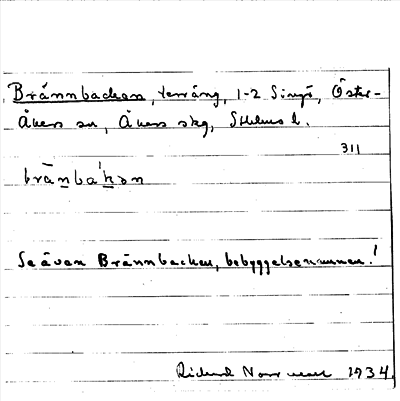 Brännbacken, terräng, 1-2 Singö, Öster-
Åkers sn, Åkers skg, Sthlms l.
311
brǟnba'kən
Se även Brännbacken, bebyggelsenamnen!
Rickard 1934.